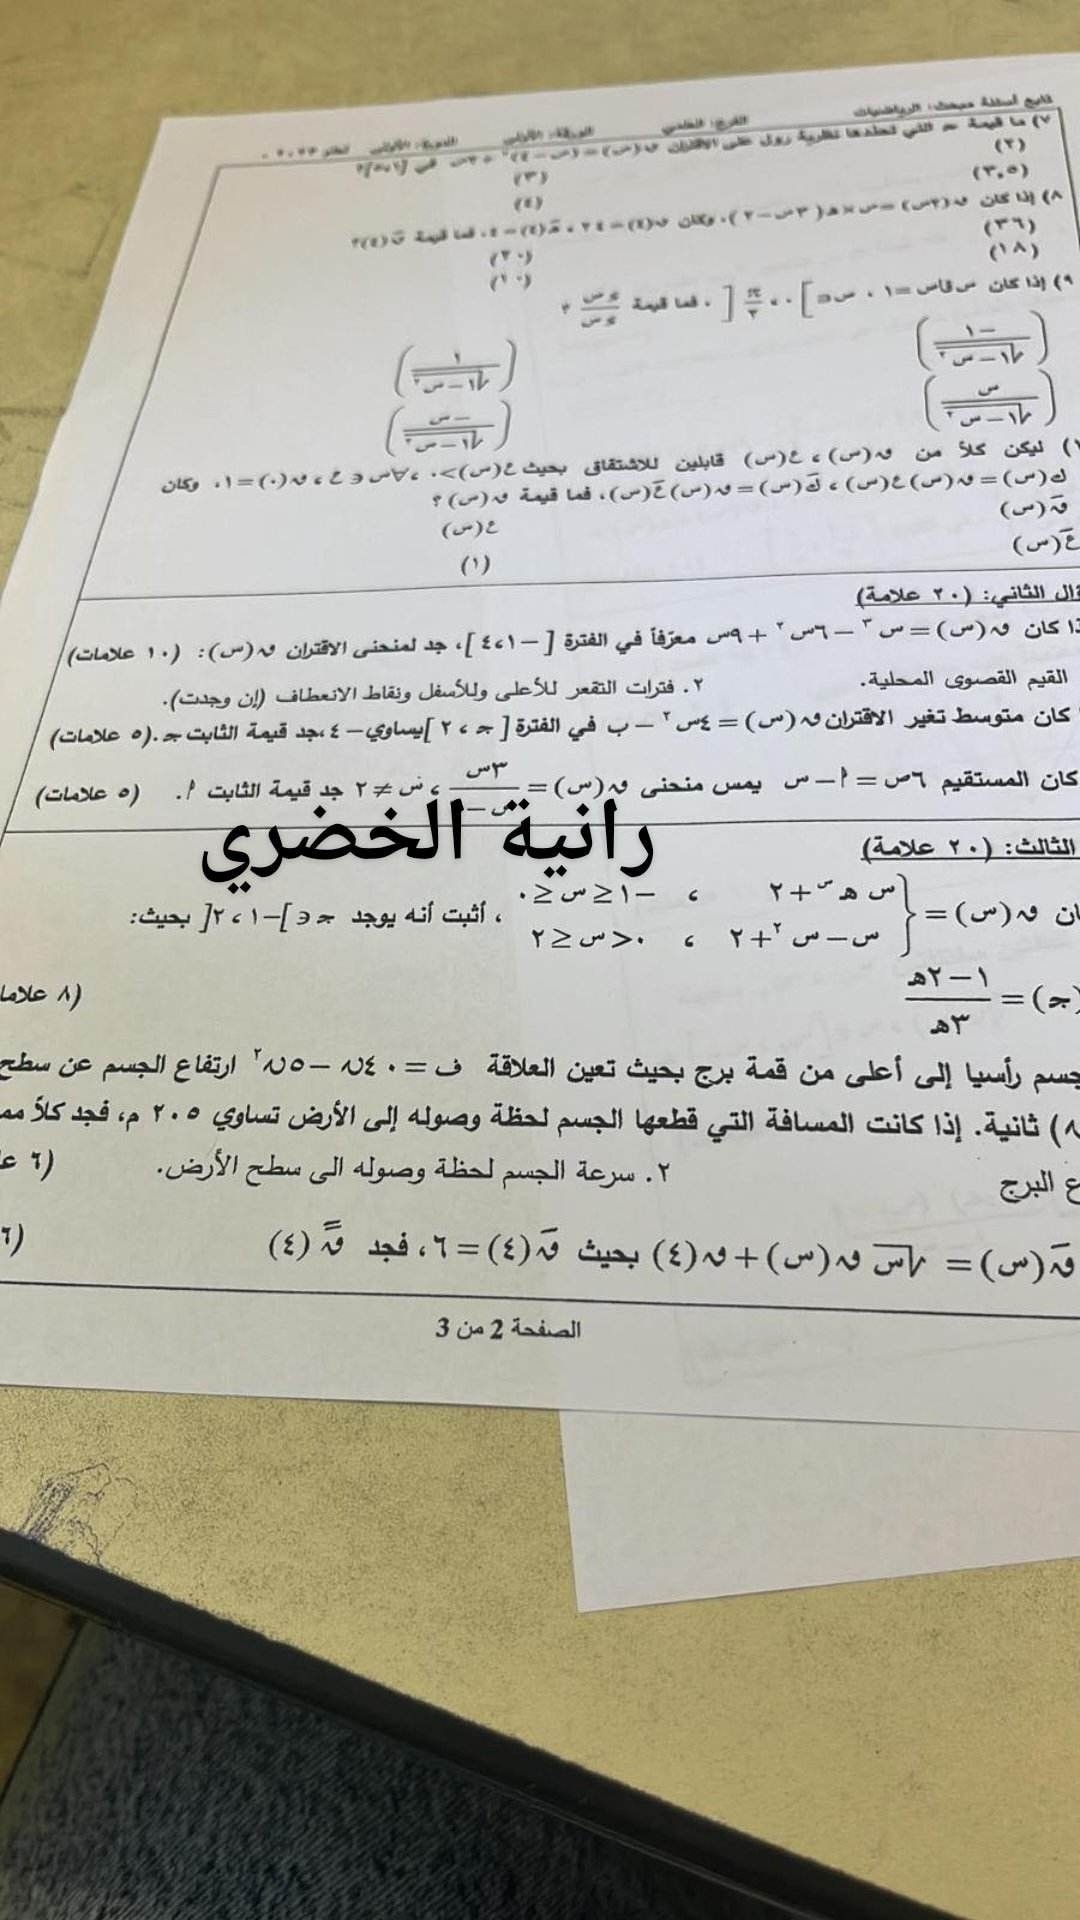 تابع أسئلة مبحث: الرياضيات الفرع: العلمي الورقة: الأولى الدورة: الأولى
٧) ما قيمة جـ التي تحددها نظرية رول على الاقتران ق(س) = (س − ٤)² + ٢س في
(٢) (٣)
(٣,٥) (٤)
٨) إذا كان ق(٢س) = س × هـ(٣س − ٢)، وكان ق(٤) = ٢٤، هـَ(٤) = ٤، فما قيمة قَ(٤)؟
(٣٦) (٢٠)
(١٨) (١٠)
٩) إذا كان س قاص = ١، ص ∈ ]٠، π/٢[، فما قيمة ءص/ءس ؟
(−١/√(١−س²)) (١/√(١−س²))
(س/√(١−س²)) (−س/√(١−س²))
ليكن كلاً من ق(س)، ع(س) قابلين للاشتقاق بحيث ع(س) > ٠، ∀س ∈ ح، ق(٠) = ١، وكان
ك(س) = ق(س) ع(س)، كَ(س) = ق(س) عَ(س)، فما قيمة ق(س)؟
قَ(س) ع(س)
عَ(س) (١)
ؤال الثاني: (٢٠ علامة)
ذا كان ق(س) = س³ − ٦س² + ٩س معرّفاً في الفترة [−١، ٤]، جد لمنحنى الاقتران ق(س): (١٠ علامات)
القيم القصوى المحلية. ٢. فترات التقعر للأعلى وللأسفل ونقاط الانعطاف (إن وجدت).
كان متوسط تغير الاقتران ق(س) = ٤س² − ب في الفترة [جـ، ٢] يساوي −٤، جد قيمة الثابت جـ. (٥ علامات)
كان المستقيم ٦ص = أ − س يمس منحنى ق(س) = ٣س/س −، س ≠ ٢ جد قيمة الثابت أ. (٥ علامات)
رانية الخضري
الثالث: (٢٠ علامة)
ان ق(س) = { س هـ^س + ٢ ، −١ ≤ س ≤ ٠
س − س² + ٢ ، ٠ < س ≤ ٢ ، أثبت أنه يوجد جـ ∈ ]−١، ٢[ بحيث:
(جـ) = (١ − ٢هـ)/٣هـ (٨ علاما
جسم رأسيا إلى أعلى من قمة برج بحيث تعين العلاقة ف = ٤٠ن − ٥ن² ارتفاع الجسم عن سطح
ن) ثانية. إذا كانت المسافة التي قطعها الجسم لحظة وصوله إلى الأرض تساوي ٢٠٥ م، فجد كلاً مم
ع البرج ٢. سرعة الجسم لحظة وصوله الى سطح الأرض. (٦ عـ
قَ(س) = √س ق(س) + ق(٤) بحيث قَ(٤) = ٦، فجد قً(٤) (٦
الصفحة 2 من 3